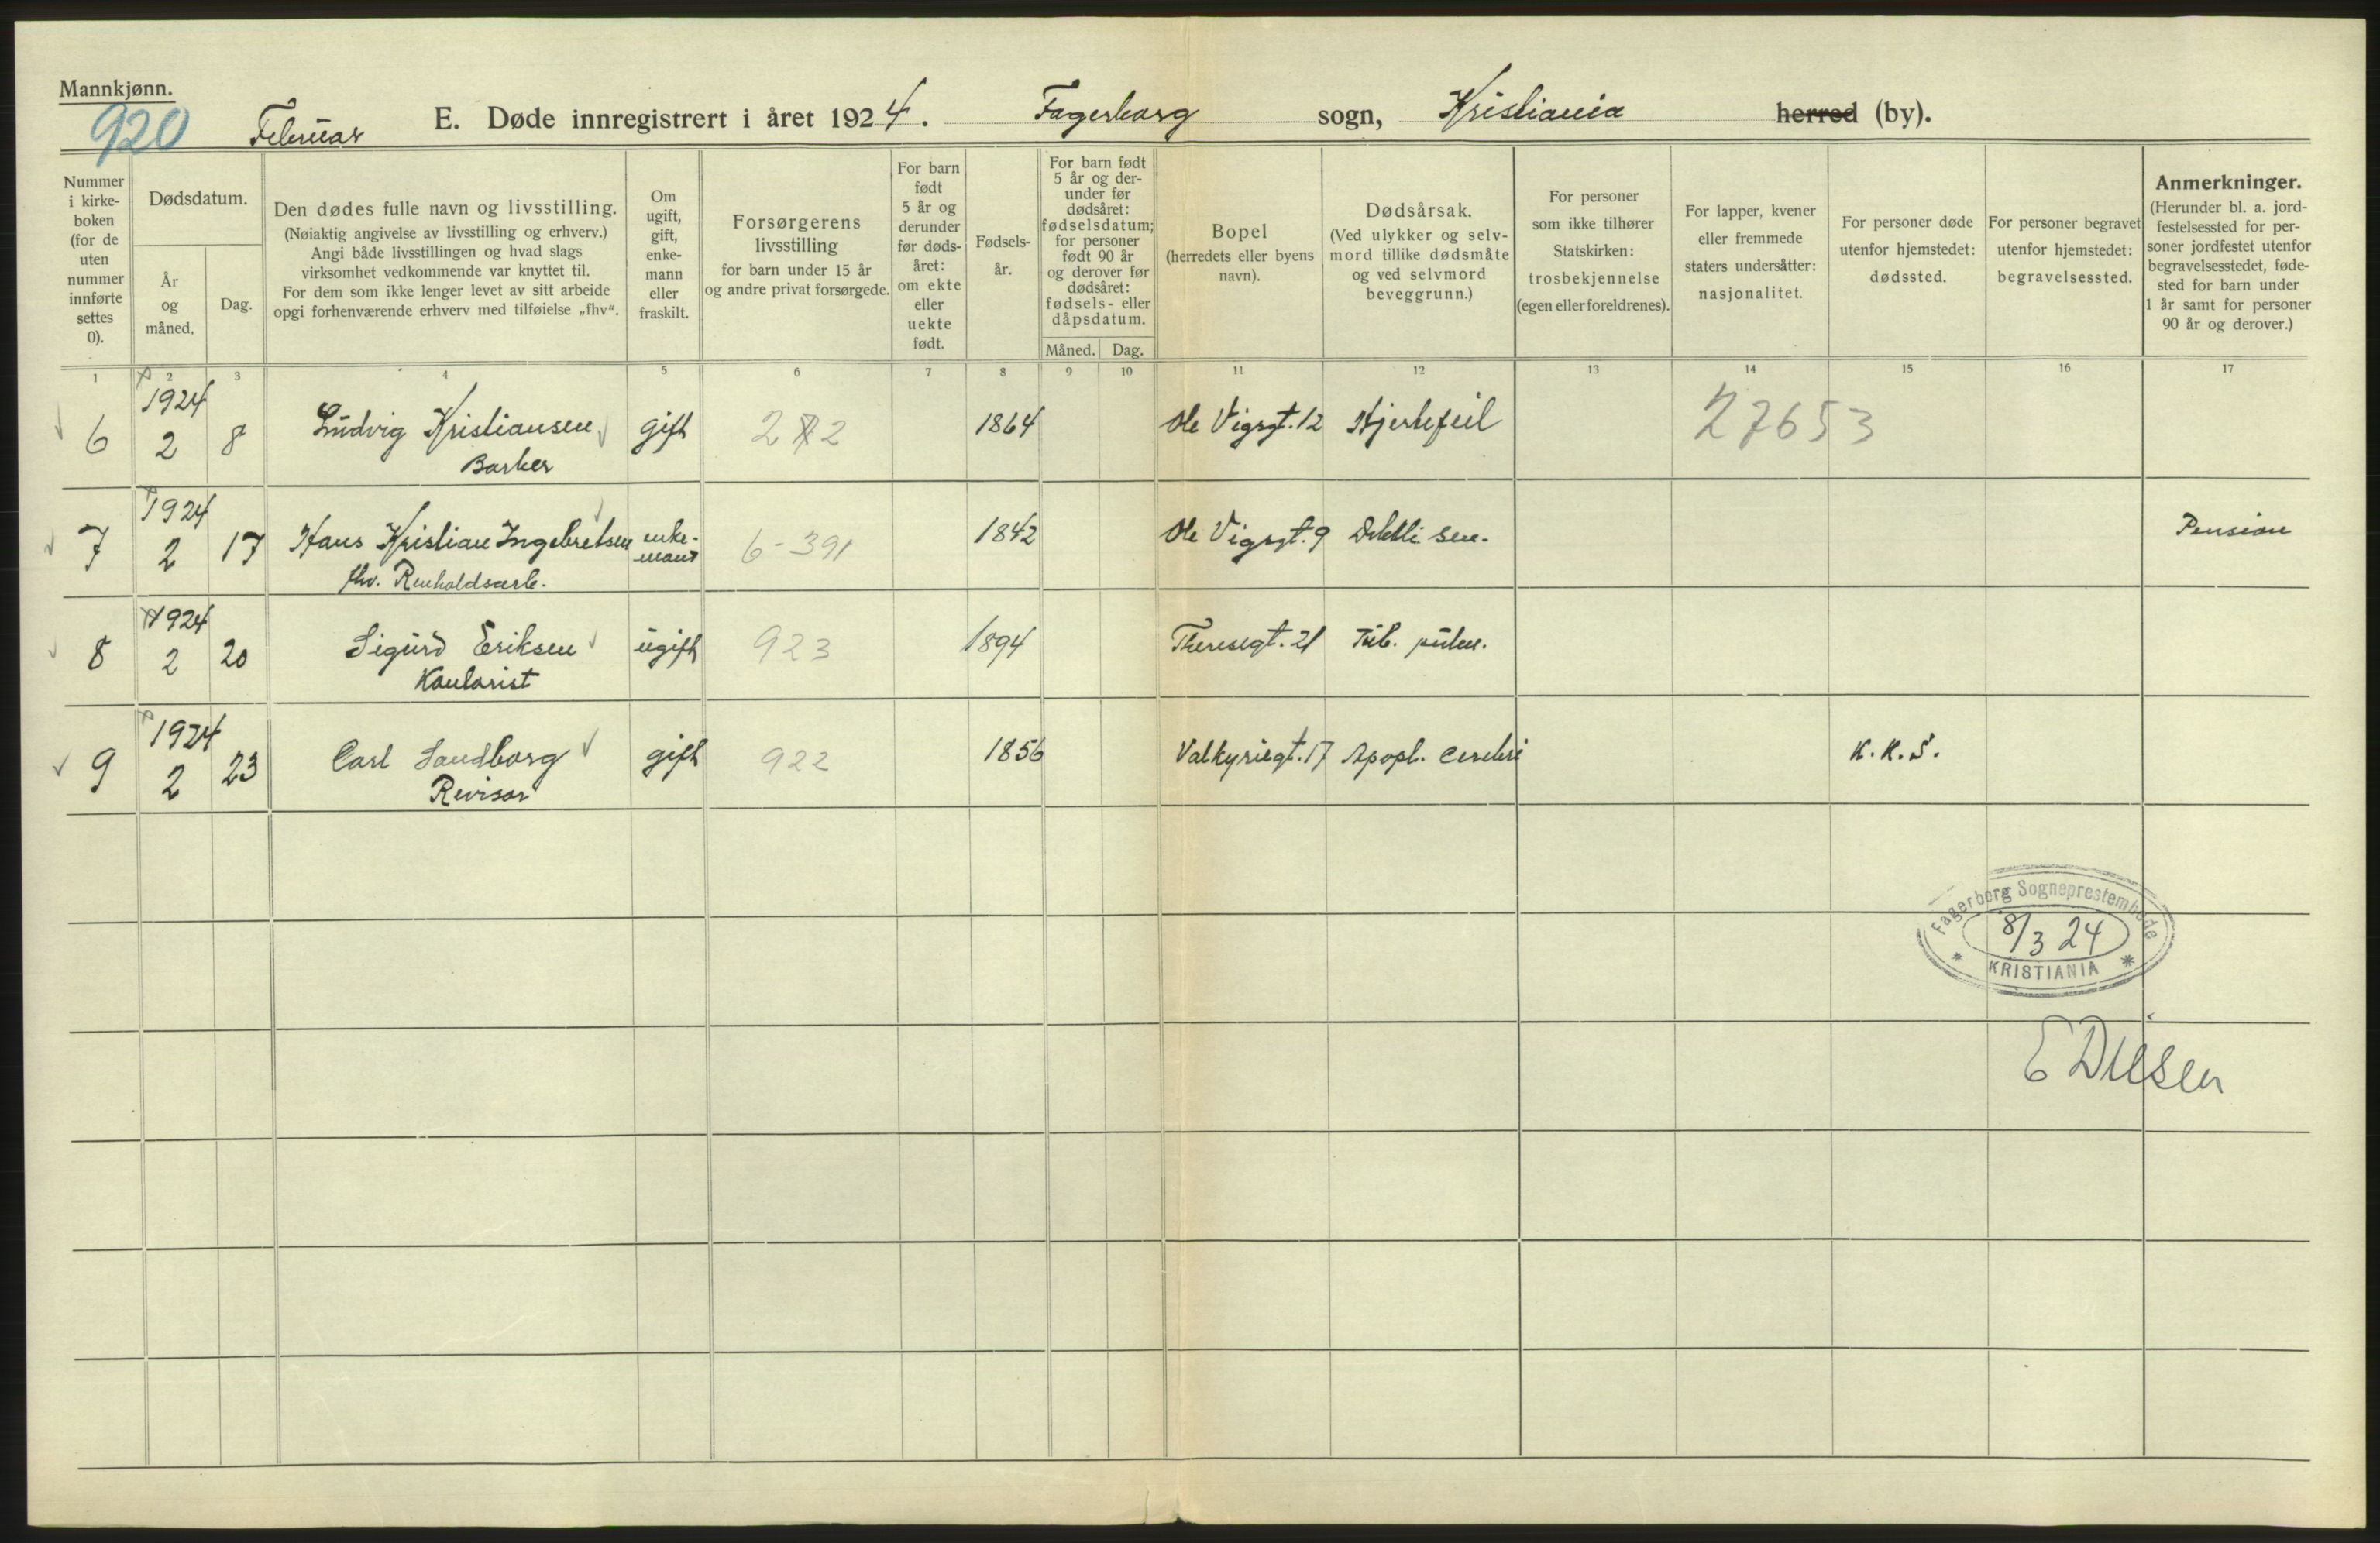 Mannkjønn.
920
Februar E. Døde innregistrert i året 1924. Fagerborg sogn, Kristiania herred (by).
Nummer i kirke-boken (for de uten nummer innførte settes 0).
Dødsdatum.
År og måned.
Dag.
Den dødes fulle navn og livsstilling.
(Nøiaktig angivelse av livsstilling og erhverv.)
Angi både livsstillingen og hvad slags
virksomhet vedkommende var knyttet til.
For dem som ikke lenger levet av sitt arbeide
opgi forhenværende erhverv med tilføielse „fhv“.
Om ugift, gift, enke-mann eller fraskilt.
Forsørgerens livsstilling
for barn under 15 år
og andre privat forsørgede.
For barn født 5 år og derunder før døds-året: om ekte eller uekte født.
Fødsels-år.
For barn født 5 år og der-under før dødsåret: fødselsdatum; for personer født 90 år og derover før dødsåret: fødsels- eller dåpsdatum.
Måned. Dag.
Bopel
(herredets eller byens navn).
Dødsårsak.
(Ved ulykker og selv-mord tillike dødsmåte og ved selvmord beveggrunn.)
For personer som ikke tilhører Statskirken: trosbekjennelse (egen eller foreldrenes).
For lapper, kvener eller fremmede staters undersåtter: nasjonalitet.
For personer døde utenfor hjemstedet: dødssted.
For personer begravet utenfor hjemstedet: begravelsessted.
Anmerkninger.
(Herunder bl. a. jord-festelsessted for per-soner jordfestet utenfor begravelsesstedet, føde-sted for barn under 1 år samt for personer 90 år og derover.)
1 2 3 4 5 6 7 8 9 10 11 12 13 14 15 16 17
6 1924 2 8 Ludvig Kristiansen gift 1864 Ole Vigsgt. 12 Hjertefeil 27653
Barber
7 1924 2 17 Hans Kristian Ingebretsen enke-mand 6-391 1842 Ole Vigsgt. 9 Debili sen. Pension
fhv. Renholdsarb.
8 1924 2 20 Sigurd Eriksen ugift 923 1894 Theresegt. 21 Tub. pulm.
Kontorist
9 1924 2 23 Carl Sandborg gift 922 1856 Valkyriegt. 17 Apopl. cerebri K. K. S.
Revisor
Fagerborg Sogneprestembede
8/3 24
* KRISTIANIA *
E Diesen